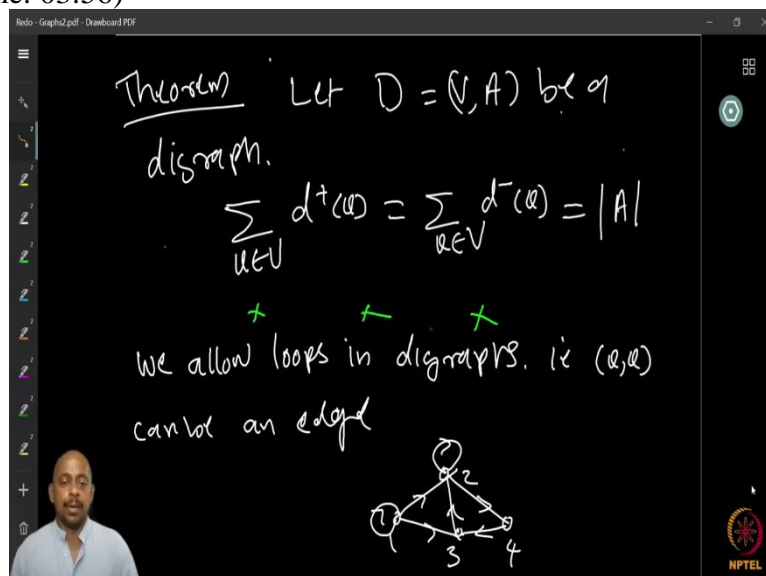 Redo - Graphs2.pdf - Drawboard PDF
Theorem Let D = (V, A) be a
digraph.
∑ d⁺(v) = ∑ d⁻(v) = |A|
v∈V v∈V
We allow loops in digraphs. ie (v,v)
can be an edge
2
1 3 4
NPTEL